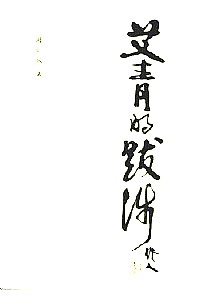 艾青的跋涉